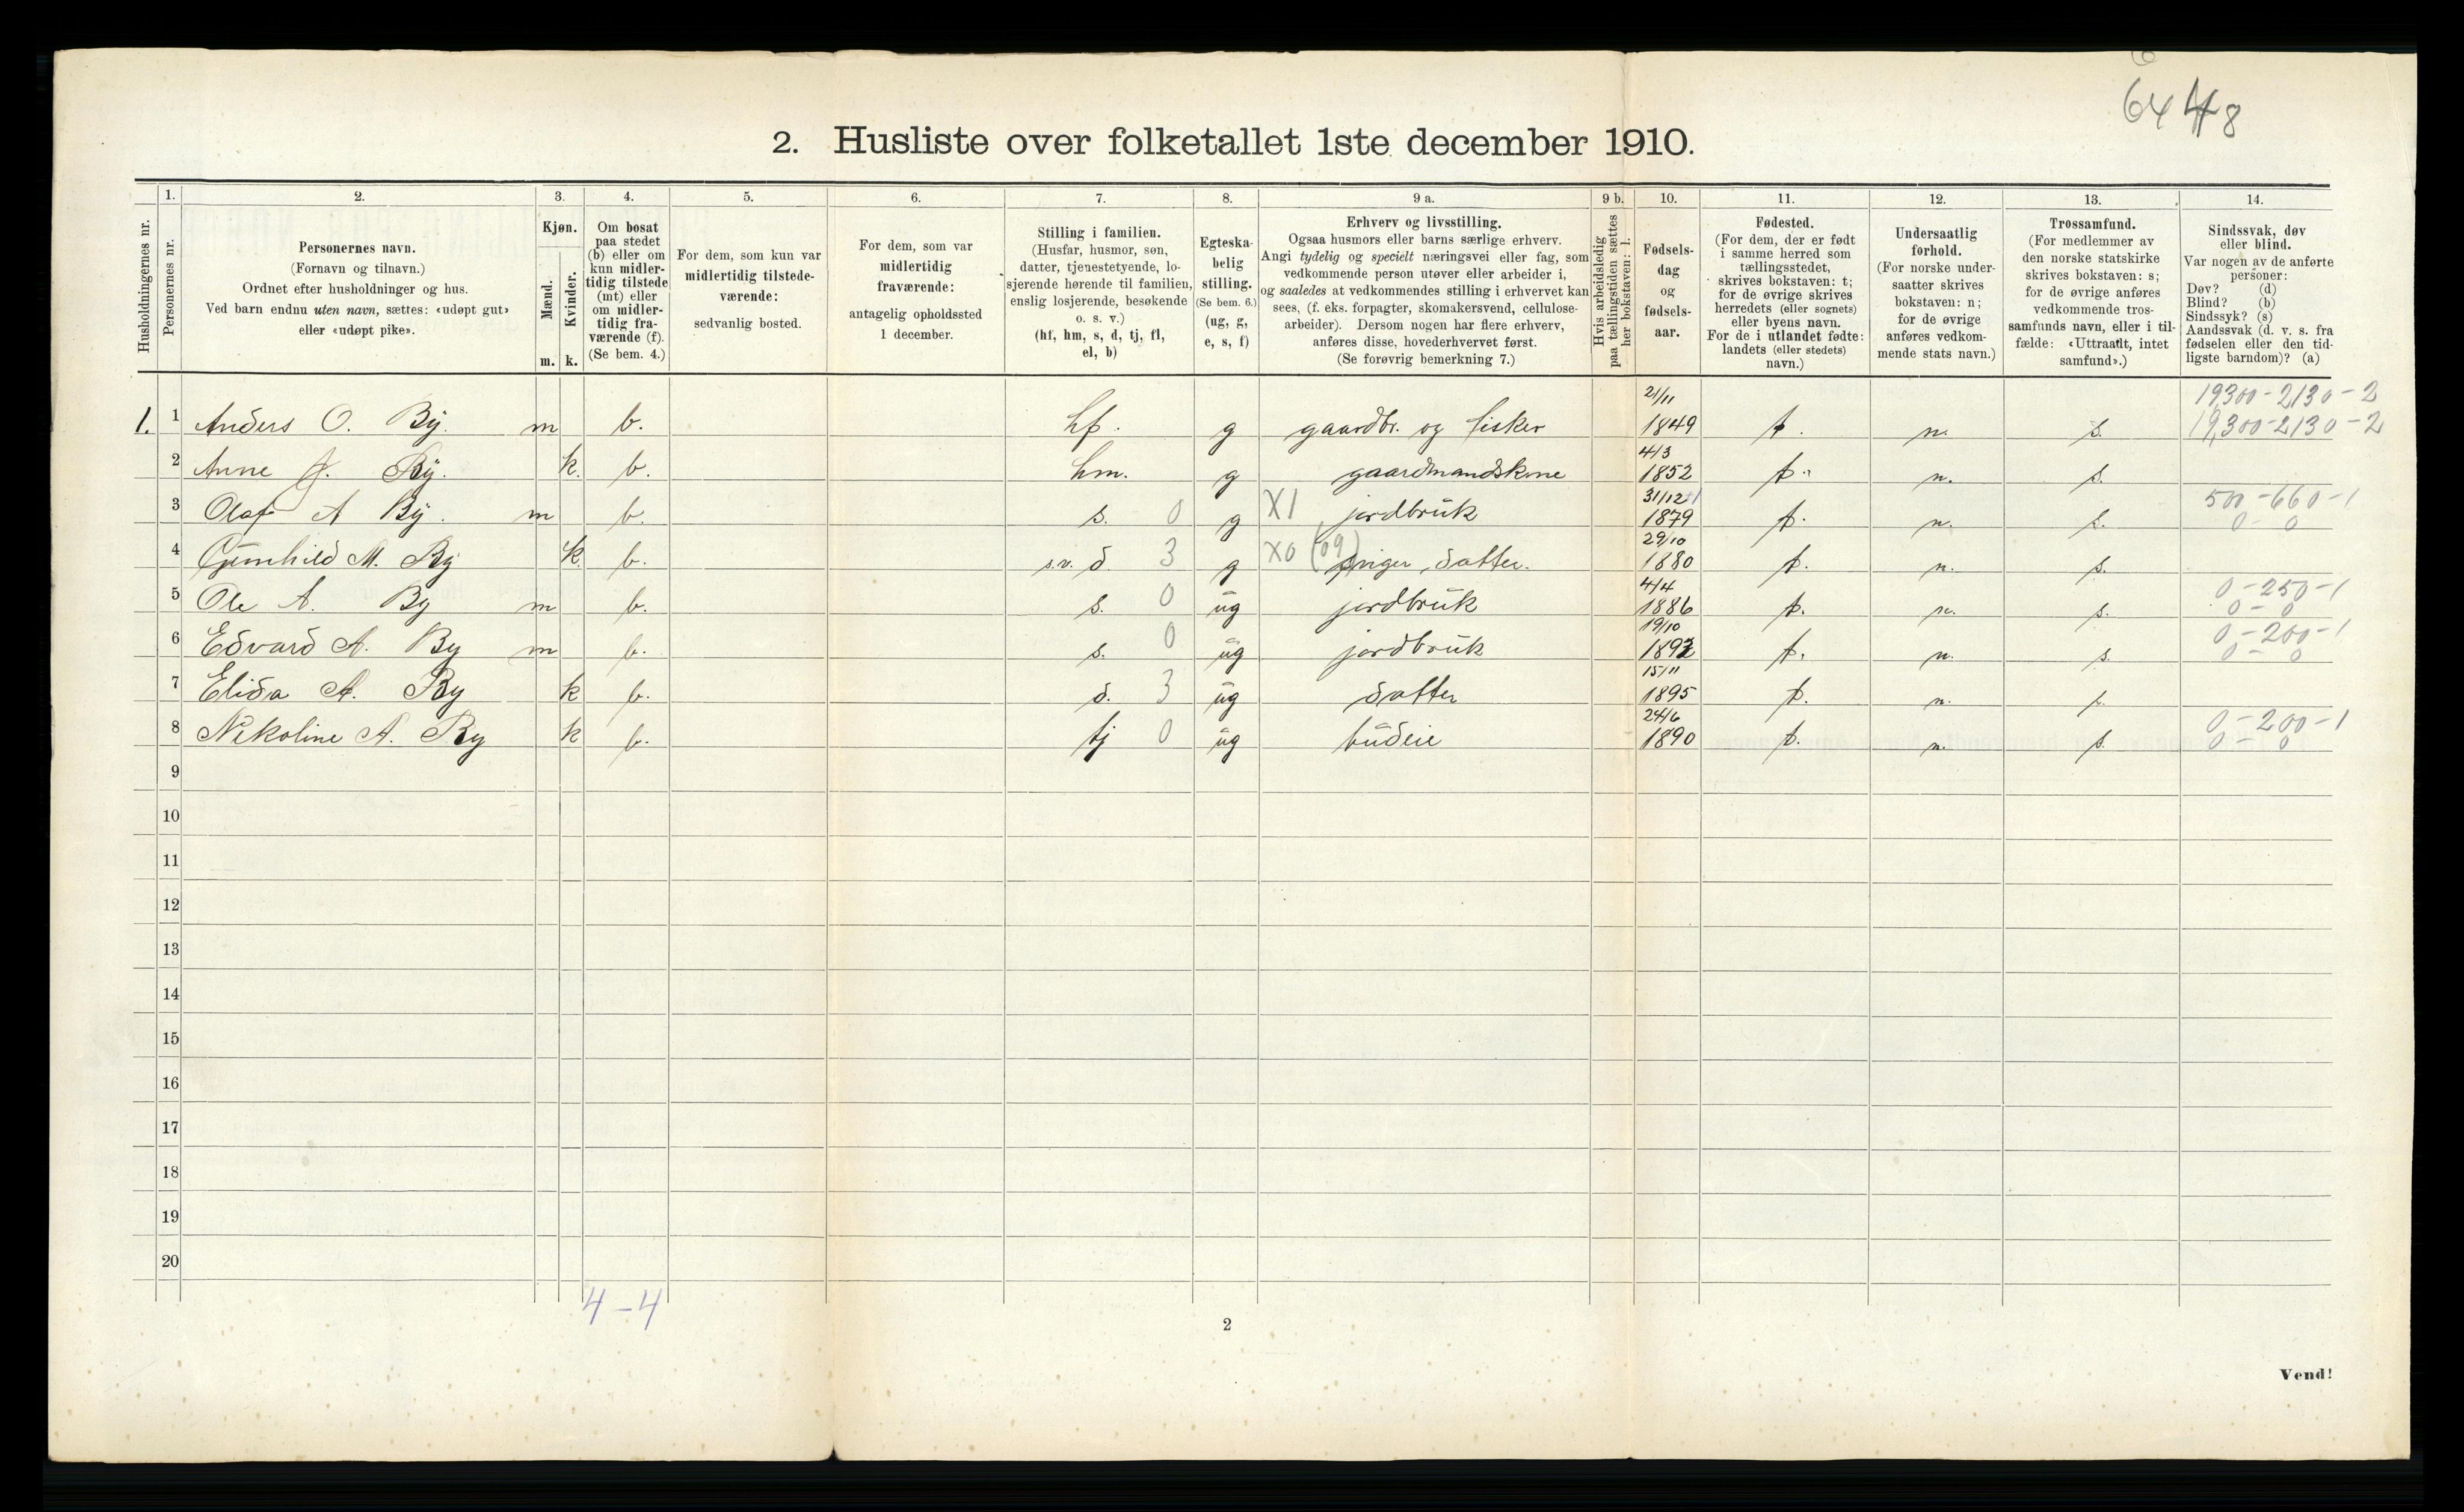 6448
2. Husliste over folketallet 1ste december 1910.
Husholdningernes nr.
1. Personernes nr.
2. Personernes navn.
(Fornavn og tilnavn.)
Ordnet efter husholdninger og hus.
Ved barn endnu uten navn, sættes: «udøpt gut»
eller «udøpt pike».
3. Kjøn.
Mænd. m.
Kvinder. k.
4. Om bosat
paa stedet
(b) eller om
kun midler-
tidig tilstede
(mt) eller
om midler-
tidig fra-
værende (f).
(Se bem. 4.)
5. For dem, som kun var
midlertidig tilstede-
værende:
sedvanlig bosted.
6. For dem, som var
midlertidig
fraværende:
antagelig opholdssted
1 december.
7. Stilling i familien.
(Husfar, husmor, søn,
datter, tjenestetyende, lo-
sjerende hørende til familien,
enslig losjerende, besøkende
o. s. v.)
(hf, hm, s, d, tj, fl,
el, b)
8. Egteska-
belig
stilling.
(Se bem. 6.)
(ug, g,
e, s, f)
9 a. Erhverv og livsstilling.
Ogsaa husmors eller barns særlige erhverv.
Angi tydelig og specielt næringsvei eller fag, som
vedkommende person utøver eller arbeider i,
og saaledes at vedkommendes stilling i erhvervet kan
sees, (f. eks. forpagter, skomakersvend, cellulose-
arbeider). Dersom nogen har flere erhverv,
anføres disse, hovederhvervet først.
(Se forøvrig bemerkning 7.)
9 b. Hvis arbeidsledig
paa tællingstiden sættes
her bokstaven: l.
10. Fødsels-
dag
og
fødsels-
aar.
11. Fødested.
(For dem, der er født
i samme herred som
tællingsstedet,
skrives bokstaven: t;
for de øvrige skrives
herredets (eller sognets)
eller byens navn.
For de i utlandet fødte:
landets (eller stedets)
navn.)
12. Undersaatlig
forhold.
(For norske under-
saatter skrives
bokstaven: n;
for de øvrige
anføres vedkom-
mende stats navn.)
13. Trossamfund.
(For medlemmer av
den norske statskirke
skrives bokstaven: s;
for de øvrige anføres
vedkommende tros-
samfunds navn, eller i til-
fælde: «Uttraadt, intet
samfund».)
14. Sindssvak, døv
eller blind.
Var nogen av de anførte
personer:
Døv? (d)
Blind? (b)
Sindssyk? (s)
Aandssvak (d. v. s. fra
fødselen eller den tid-
ligste barndom)? (a)
19,300-2130-2
1. 1 Anders O. By. m b. hf. g gaardbr. og fisker 21/11 1849 t. n. s. 19,300-2130-2
2 Anne J. By. k. b. hm. g gaardmandskone 4/3 1852 t. n. s.
3 Olaf A By. m b. s. 0 g X1 jordbruk 31/12 1879 t. n. s. 500-660-1 0-0
4 Gunhild M. By k. b. s.v. d. 3 g X0 (09) datter. 29/10 1880 t. n. s.
5 Ole A. By m b. s. 0 ug jordbruk 4/4 1886 t. n. s. 0-250-1 0-0
6 Edvard A. By m b. s. 0 ug jordbruk 19/10 1892 t. n. s. 0-200-1 0-0
7 Elida A. By k b. d. 3 ug datter 15/11 1895 t. n. s.
8 Nikoline A. By k b. tj 0 ug budeie 24/6 1890 t. n. s. 0-200-1 0-0
9
10
11
12
13
14
15
16
17
18
19
20
4-4
2
Vend!